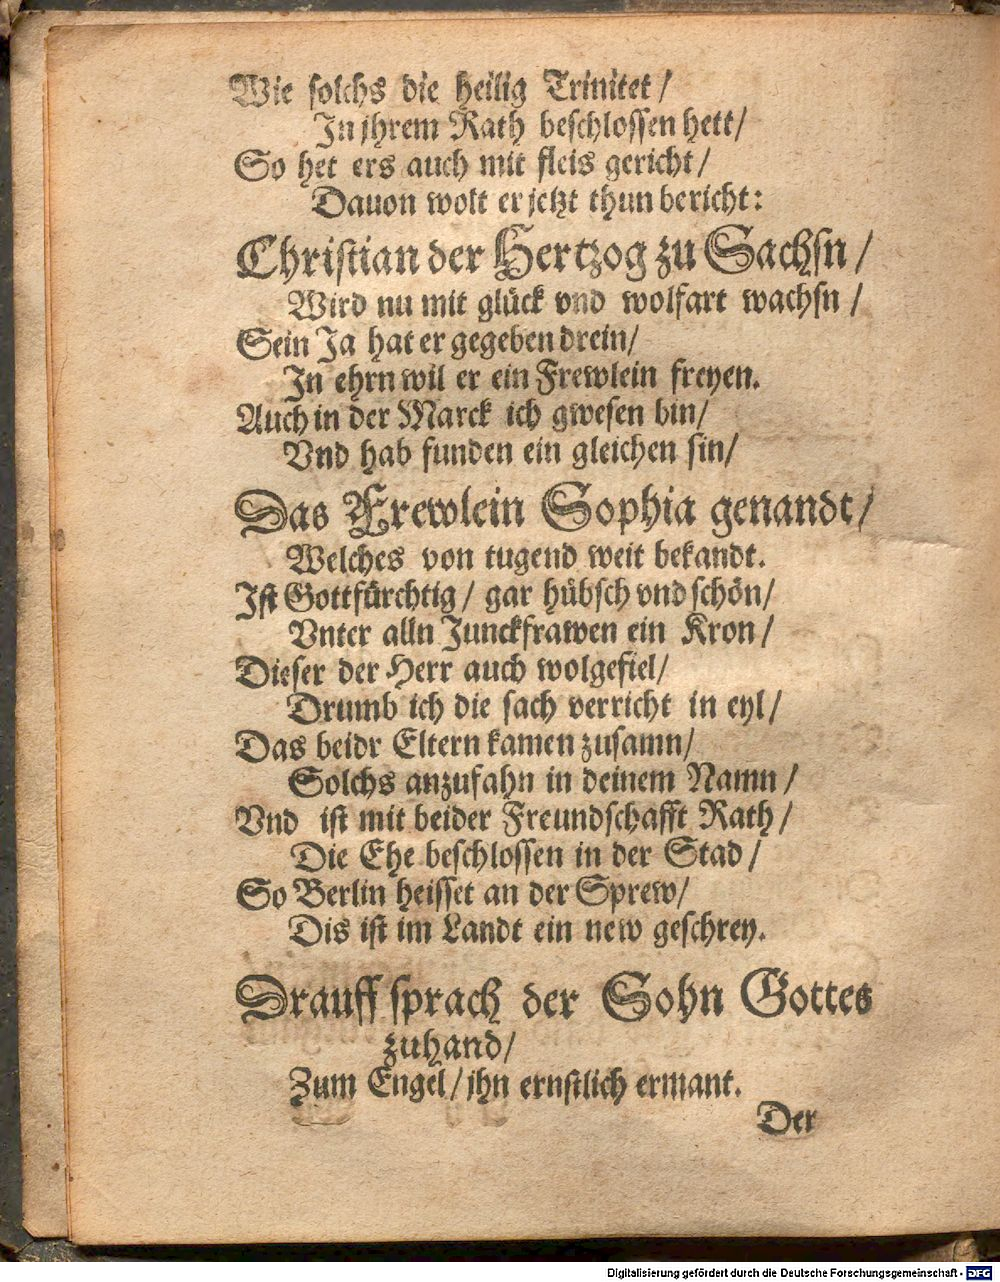 Wie solchs die heilig Trinitet /
In jhrem Rath beschlossen hett /
So het ers auch mit fleis gericht /
Dauon wolt er jetzt thun bericht:
Christian der Hertzog zu Sachsn /
Wird nu mit glück vnd wolfart wachsn /
Sein Ja hat er gegeben drein /
In ehrn wil er ein Frewlein freyen.
Auch in der Marck ich gwesen bin /
Vnd hab funden ein gleichen sin /
Das Frewlein Sophia genandt /
Welches von tugend weit bekandt.
Ist Gottfürchtig / gar hübsch vnd schön /
Vnter alln Junckfrawen ein Kron /
Dieser der Herr auch wolgefiel /
Drumb ich die sach verricht in eyl /
Das beidr Eltern kamen zusamn /
Solchs anzufahn in deinem Namn /
Vnd ist mit beider Freundschafft Rath /
Die Ehe beschlossen in der Stad /
So Berlin heisset an der Sprew /
Dis ist im Landt ein new geschrey.
Drauff sprach der Sohn Gottes
zuhand /
Zum Engel / jhn ernstlich ermant.
Der
Digitalisierung gefördert durch die Deutsche Forschungsgemeinschaft - DFG